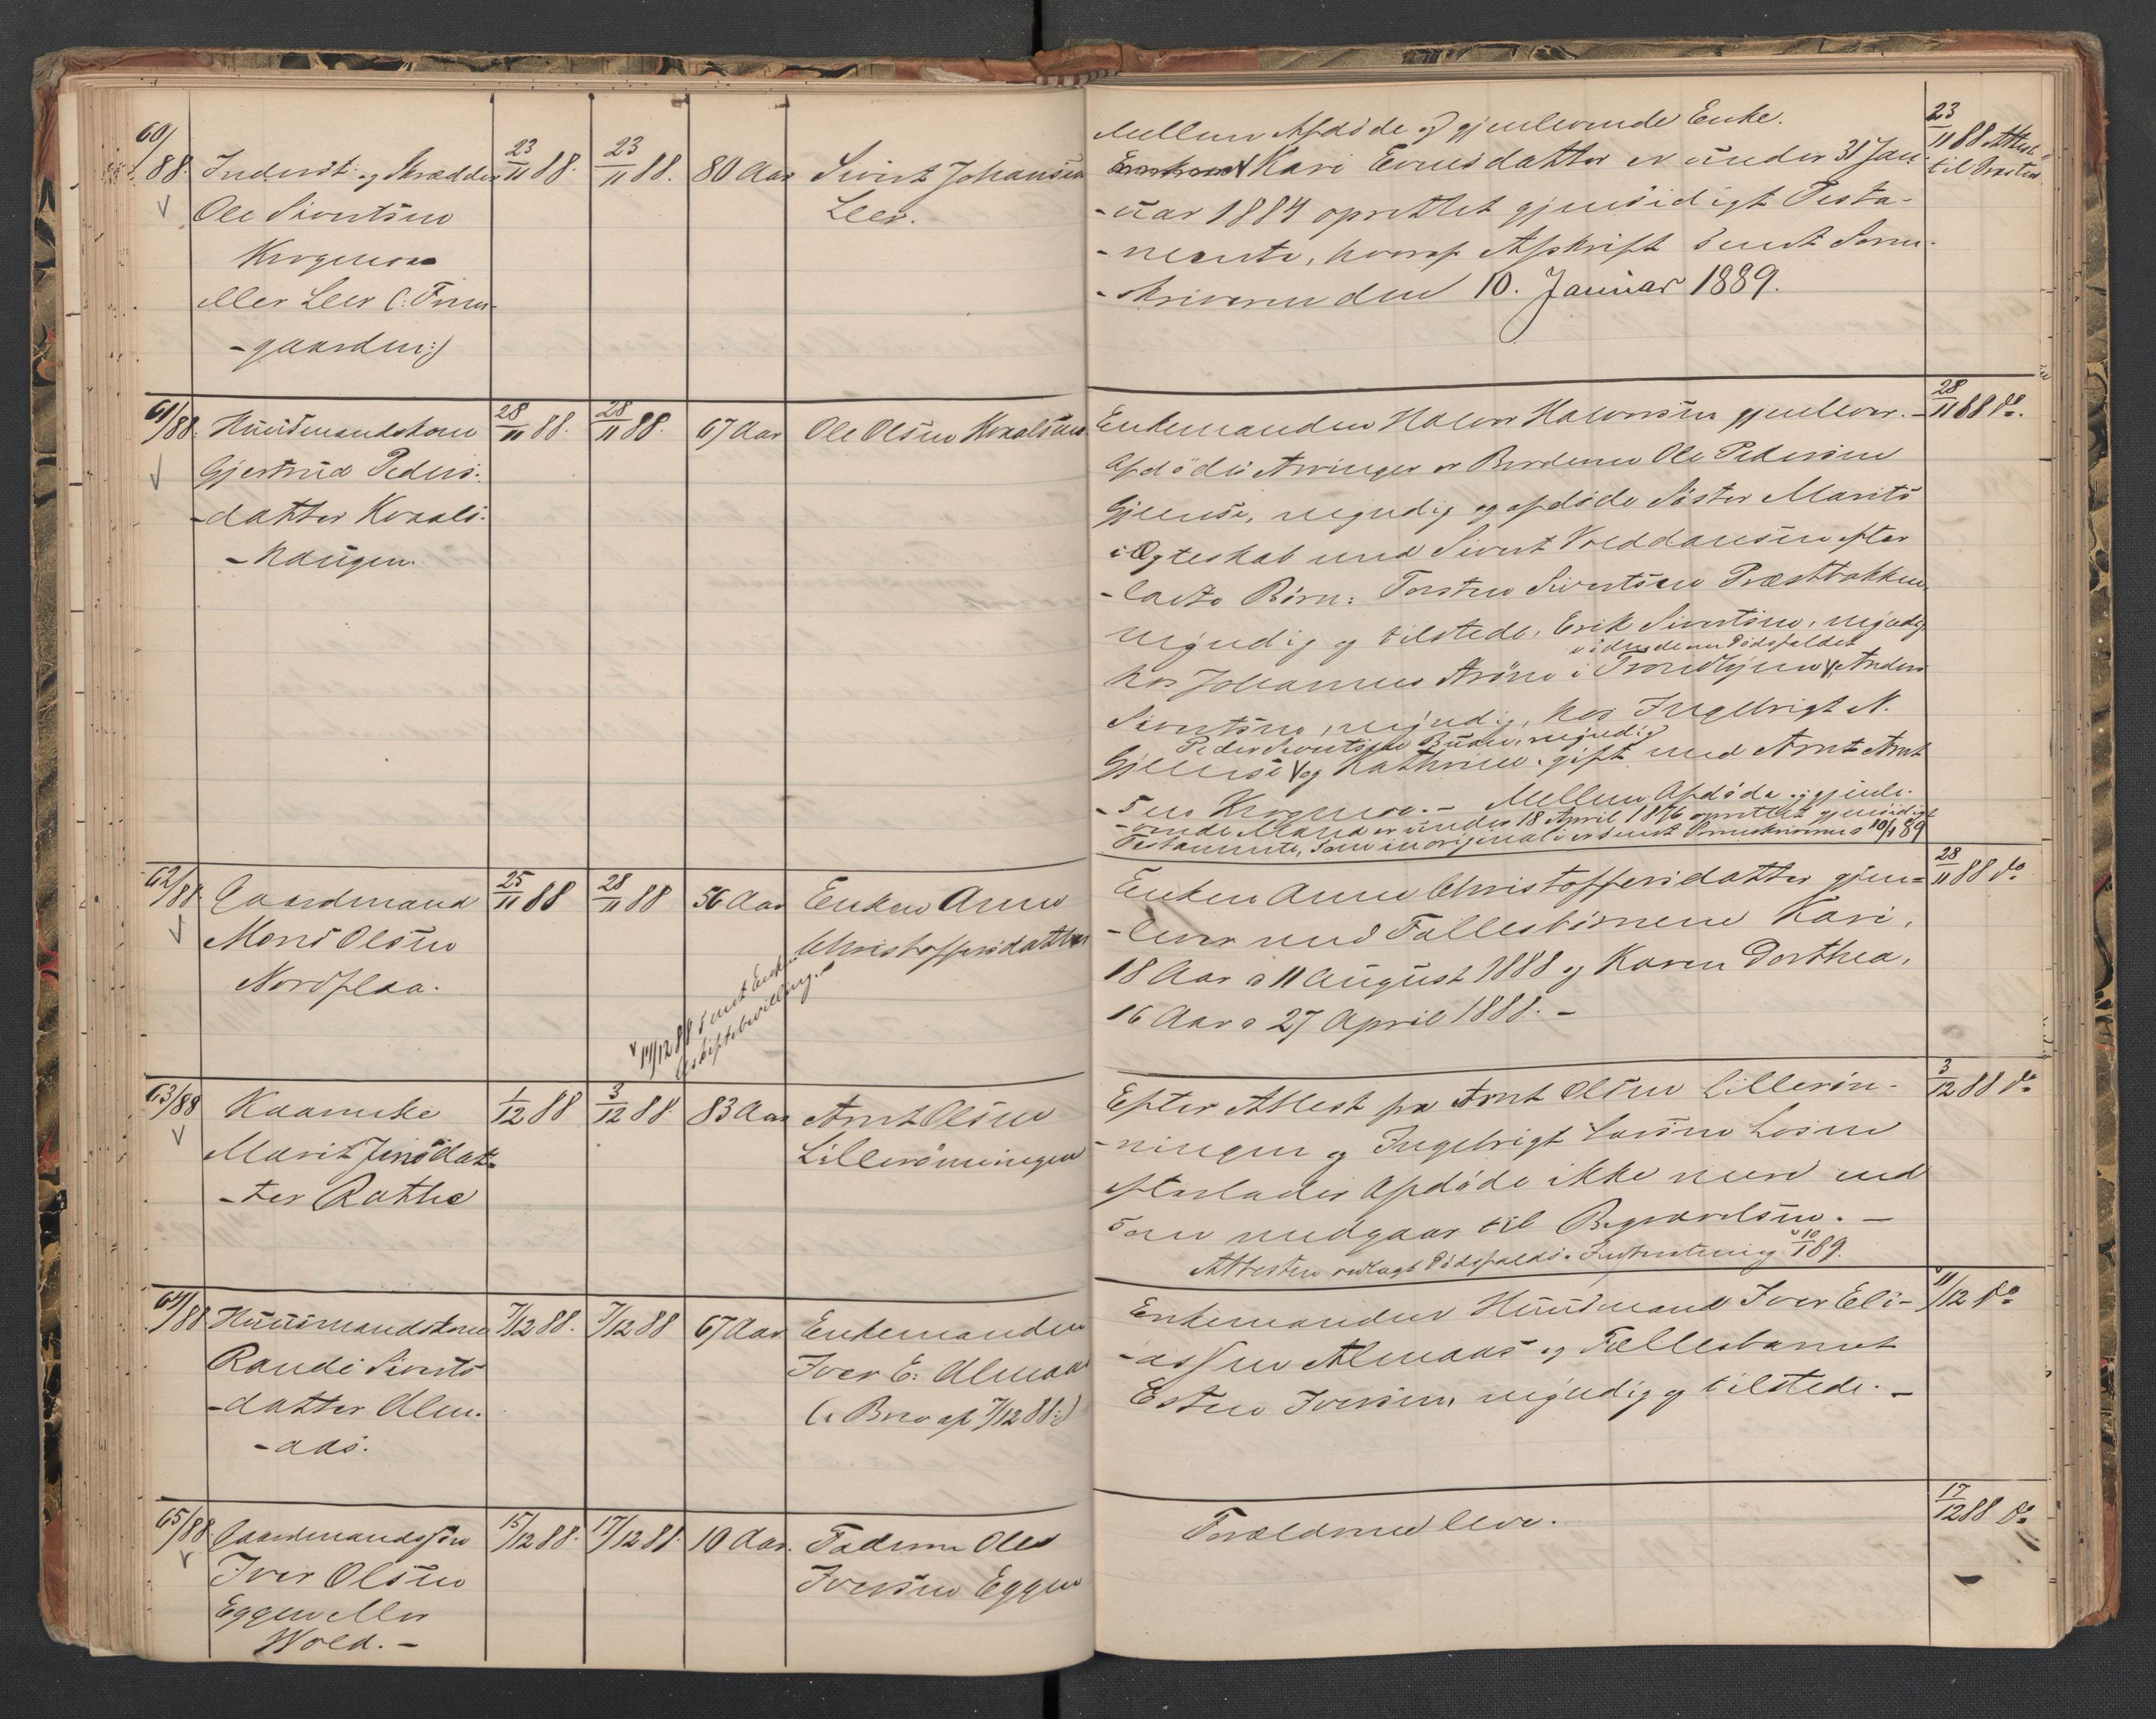 60/88. Inderst og Skrædder 23/11 88. 23/11 88. 80 Aar Sivert Johansen
Ole Sivertsen Leer.
Krogmoen
eller Leer (:
-gaarden:)
Mellem Afdøde og gjenlevende Enke.
Kari Evensdatter er under 31 Jan-
-uar 1884 oprettet gjensidigt Testa-
-mente, hvoraf Afskrift sendt Soren-
-skriveren den 10. Januar 1889.
23/11 88 Attest
til Presten
61/88. Huusmandskone 28/11 88. 28/11 88. 67 Aar Ole Olsen
Gjertrud Peders-
-datter Kvaals-
-haugen.
Enkemanden Halvor Halvorsen gjenlever. -
Afdødes Arvinger er Broderen Ole Pedersen
Gjeense, myndig og afdøde Søster Marits
i Ægteskab med Sivert efter
-ladte Børn: Torsten Sivertsen Præstbakken
myndig og tilstede, Erik Sivertsen, myndig
viden denne Dødsfaldet
hos Johannes i Trondhjem, Anders
Sivertsen, myndig, hos Ingebrigt N.
Peder Sivertsen myndig
Gjeense og Kathrine, gift med Arnt Arnt
-sen Krogmoe. - Mellem Afdøde og gjenle-
-vende Mand er under 18 April 1876 oprettet gjensidigt
Testamente, som in originali er sendt Sorenskriveren 10/1 89
28/11 88 do.
62/88. Gaardmand 25/11 88 28/11 88 56 Aar Enken Anne
Mons Olsen Christoffersdatter
Nordflaa.
14/12 88 sendt Enken
Uskiftebevillingen
Enken Anne Christoffersdatter gjen-
-lever med Fællesbørnene Kari,
18 Aar a 11 August 1888 og Karen Dorthea,
16 Aar a 27 April 1888. -
28/11 88 do
63/88 Kaarenke 1/12 88 3/12 88. 83 Aar Arnt Olsen
Marit Jensdat- Lillerønningen
-ter Rathe
Efter Attest fra Arnt Olsen Lillerøn-
-ningen og Ingebrigt Larsen Losen
efterlader Afdøde ikke mere end
som medgaar til Begravelsen. -
Attesten vedlagt Dødsfalds- 10/1 89.
3/12 88 do
64/88 Huusmandskone 7/12 88. 7/12 88 67 Aar Enkemanden
Randi Siverts Iver E. Almaas
-datter Alm- (: Brev af 7/12 88:)
-aas.
Enkemanden Huusmand Iver Eli-
-assen Almaas og Fællesbarnet
Esten Iversen, myndig og tilstede. -
11/12 do
65/88 Gaardmandssøn 15/12 88. 17/12 88. 10 Aar. Faderen Ole
Iver Olsen Iversen Eggen
Eggen eller
Wold. -
Forældrene lever.
17/12 88 do